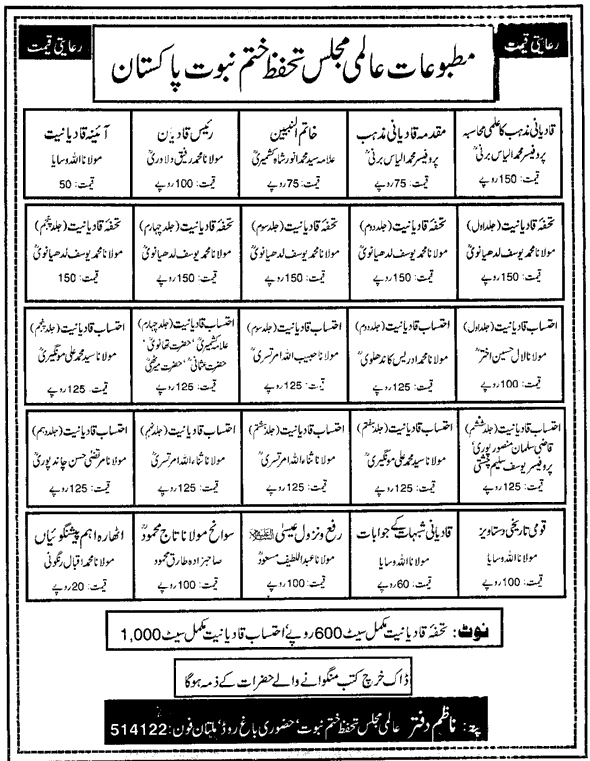 رعایتی قیمت
مطبوعات عالمی مجلس تحفظ ختم نبوت پاکستان
رعایتی قیمت
قادیانی مذہب کا علمی محاسبہ
پروفیسر محمد الیاس برنیؒ
قیمت: 150 روپے
مقدمہ قادیانی مذہب
پروفیسر محمد الیاس برنیؒ
قیمت: 75 روپے
خاتم النبیین
علامہ سید محمد انور شاہ کشمیریؒ
قیمت: 75 روپے
رئیس قادیان
مولانا محمد رفیق دلاوریؒ
قیمت: 100 روپے
آئینہ قادیانیت
مولانا اللہ وسایا
قیمت: 50
تحفۂ قادیانیت (جلد اول)
مولانا محمد یوسف لدھیانویؒ
قیمت: 150 روپے
تحفۂ قادیانیت (جلد دوم)
مولانا محمد یوسف لدھیانویؒ
قیمت: 150 روپے
تحفۂ قادیانیت (جلد سوم)
مولانا محمد یوسف لدھیانویؒ
قیمت: 150 روپے
تحفۂ قادیانیت (جلد چہارم)
مولانا محمد یوسف لدھیانویؒ
قیمت: 150 روپے
تحفۂ قادیانیت (جلد پنجم)
مولانا محمد یوسف لدھیانویؒ
قیمت: 150
احتساب قادیانیت (جلد اول)
مولانا لال حسین اخترؒ
قیمت: 100 روپے
احتساب قادیانیت (جلد دوم)
مولانا محمد ادریس کاندھلویؒ
قیمت: 125 روپے
احتساب قادیانیت (جلد سوم)
مولانا حبیب اللہ امرتسریؒ
قیمت: 125 روپے
احتساب قادیانیت (جلد چہارم)
علامہ کشمیریؒ، حضرت تھانویؒ،
حضرت عثمانیؒ، حضرت میرٹھیؒ
قیمت: 125 روپے
احتساب قادیانیت (جلد پنجم)
مولانا سید محمد علی مونگیریؒ
قیمت: 125 روپے
احتساب قادیانیت (جلد ششم)
قاضی سلمان منصور پوریؒ
پروفیسر یوسف سلیم چشتیؒ
قیمت: 125 روپے
احتساب قادیانیت (جلد ہفتم)
مولانا سید محمد علی مونگیریؒ
قیمت: 125 روپے
احتساب قادیانیت (جلد ہشتم)
مولانا ثناء اللہ امرتسریؒ
قیمت: 125 روپے
احتساب قادیانیت (جلد نہم)
مولانا ثناء اللہ امرتسریؒ
قیمت: 125 روپے
احتساب قادیانیت (جلد دہم)
مولانا مرتضیٰ حسن چاند پوریؒ
قیمت: 125 روپے
قومی تاریخی دستاویز
مولانا اللہ وسایا
قیمت: 100 روپے
قادیانی شبہات کے جوابات
مولانا اللہ وسایا
قیمت: 60 روپے
رفع ونزول عیسیٰ علیہ السلام
مولانا عبداللطیف مسعودؒ
قیمت: 100 روپے
سوانح مولانا تاج محمودؒ
صاحبزادہ طارق محمودؒ
قیمت: 100 روپے
اٹھارہ اہم پیشنگوئیاں
مولانا محمد اقبال رنگونی
قیمت: 20 روپے
نوٹ: تحفۂ قادیانیت مکمل سیٹ 600 روپے، احتساب قادیانیت مکمل سیٹ 1,000
ڈاک خرچ کتب منگوانے والے حضرات کے ذمہ ہوگا
پتہ: ناظم دفتر عالمی مجلس تحفظ ختم نبوت، حضوری باغ روڈ، ملتان فون: 514122